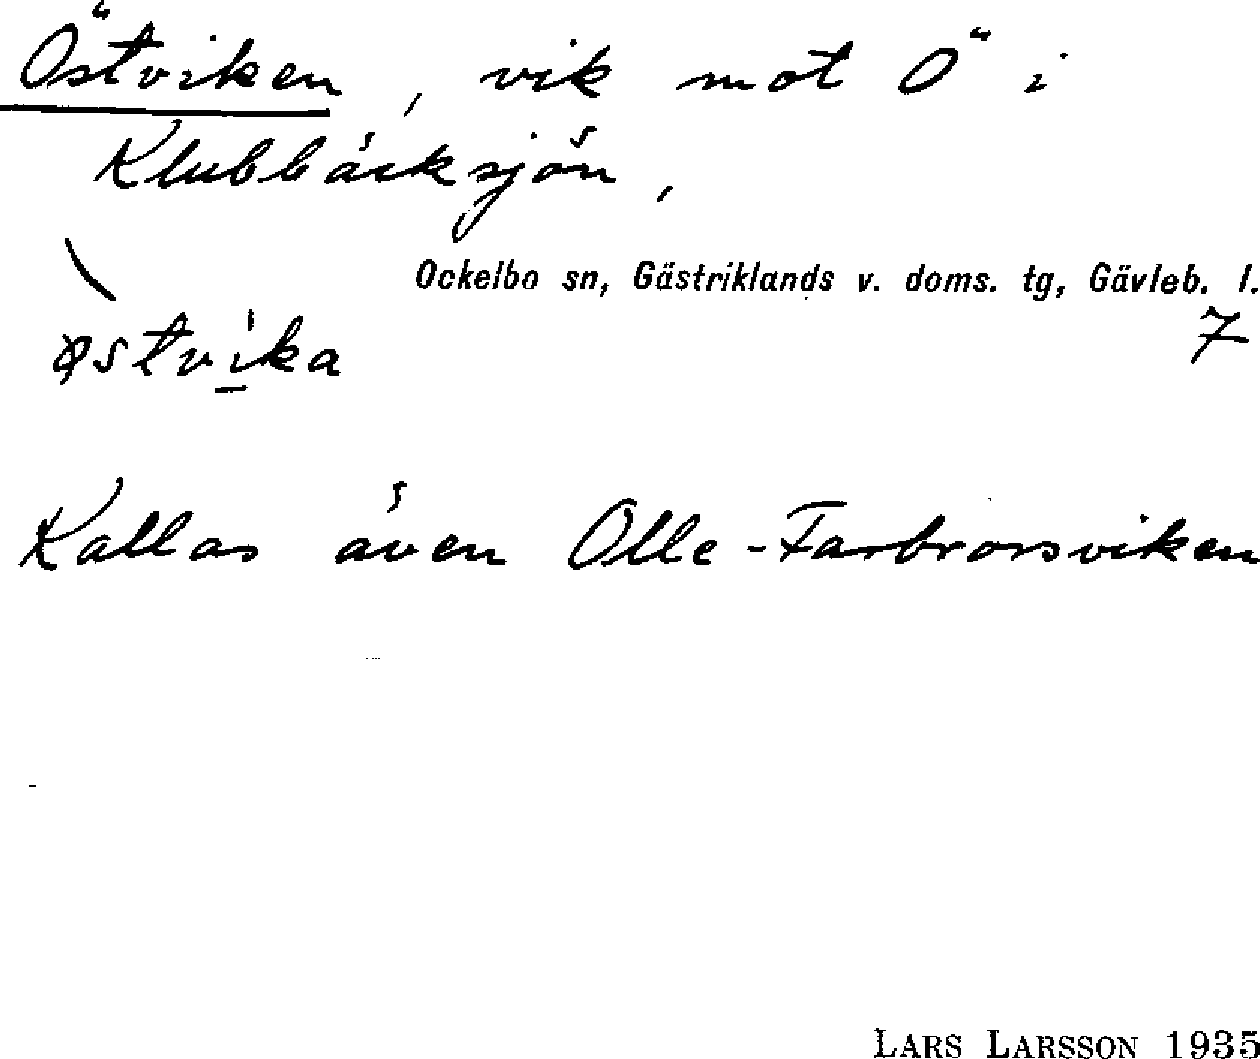 Östviken, vik mot Ö i
Klubbäcksjön,
Ockelbo sn, Gästriklands v. doms. tg, Gävleb. l.
7
østvika
Kallas även Olle-Farbrorsviken
LARS LARSSON 1935